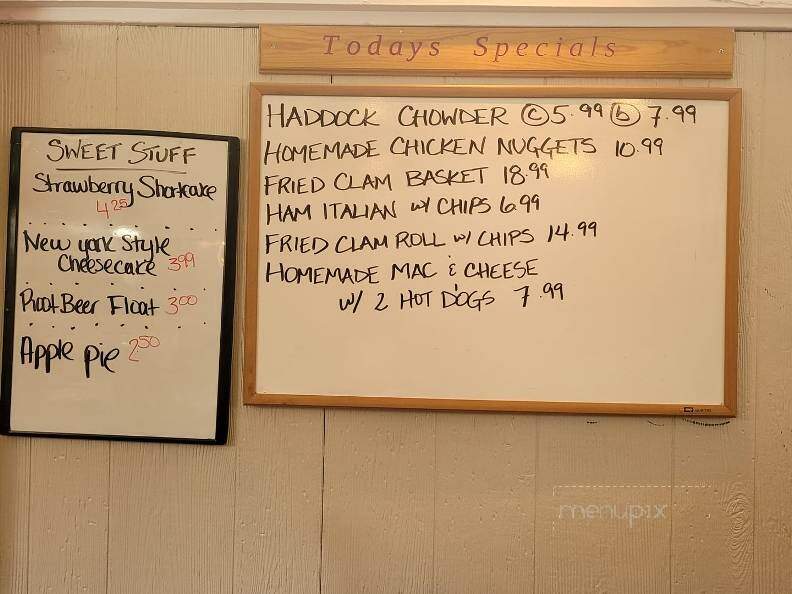 Todays Specials
HADDOCK CHOWDER ⓒ 5.99 ⓑ 7.99
HOMEMADE CHICKEN NUGGETS 10.99
FRIED CLAM BASKET 18.99
HAM ITALIAN w/ CHIPS 6.99
FRIED CLAM ROLL w/ CHIPS 14.99
HOMEMADE MAC & CHEESE
w/ 2 HOT DOGS 7.99
SWEET STUFF
Strawberry Shortcake
4.25
New york Style
Cheesecake 3.99
Root Beer Float 3.00
Apple pie 2.50
menupix